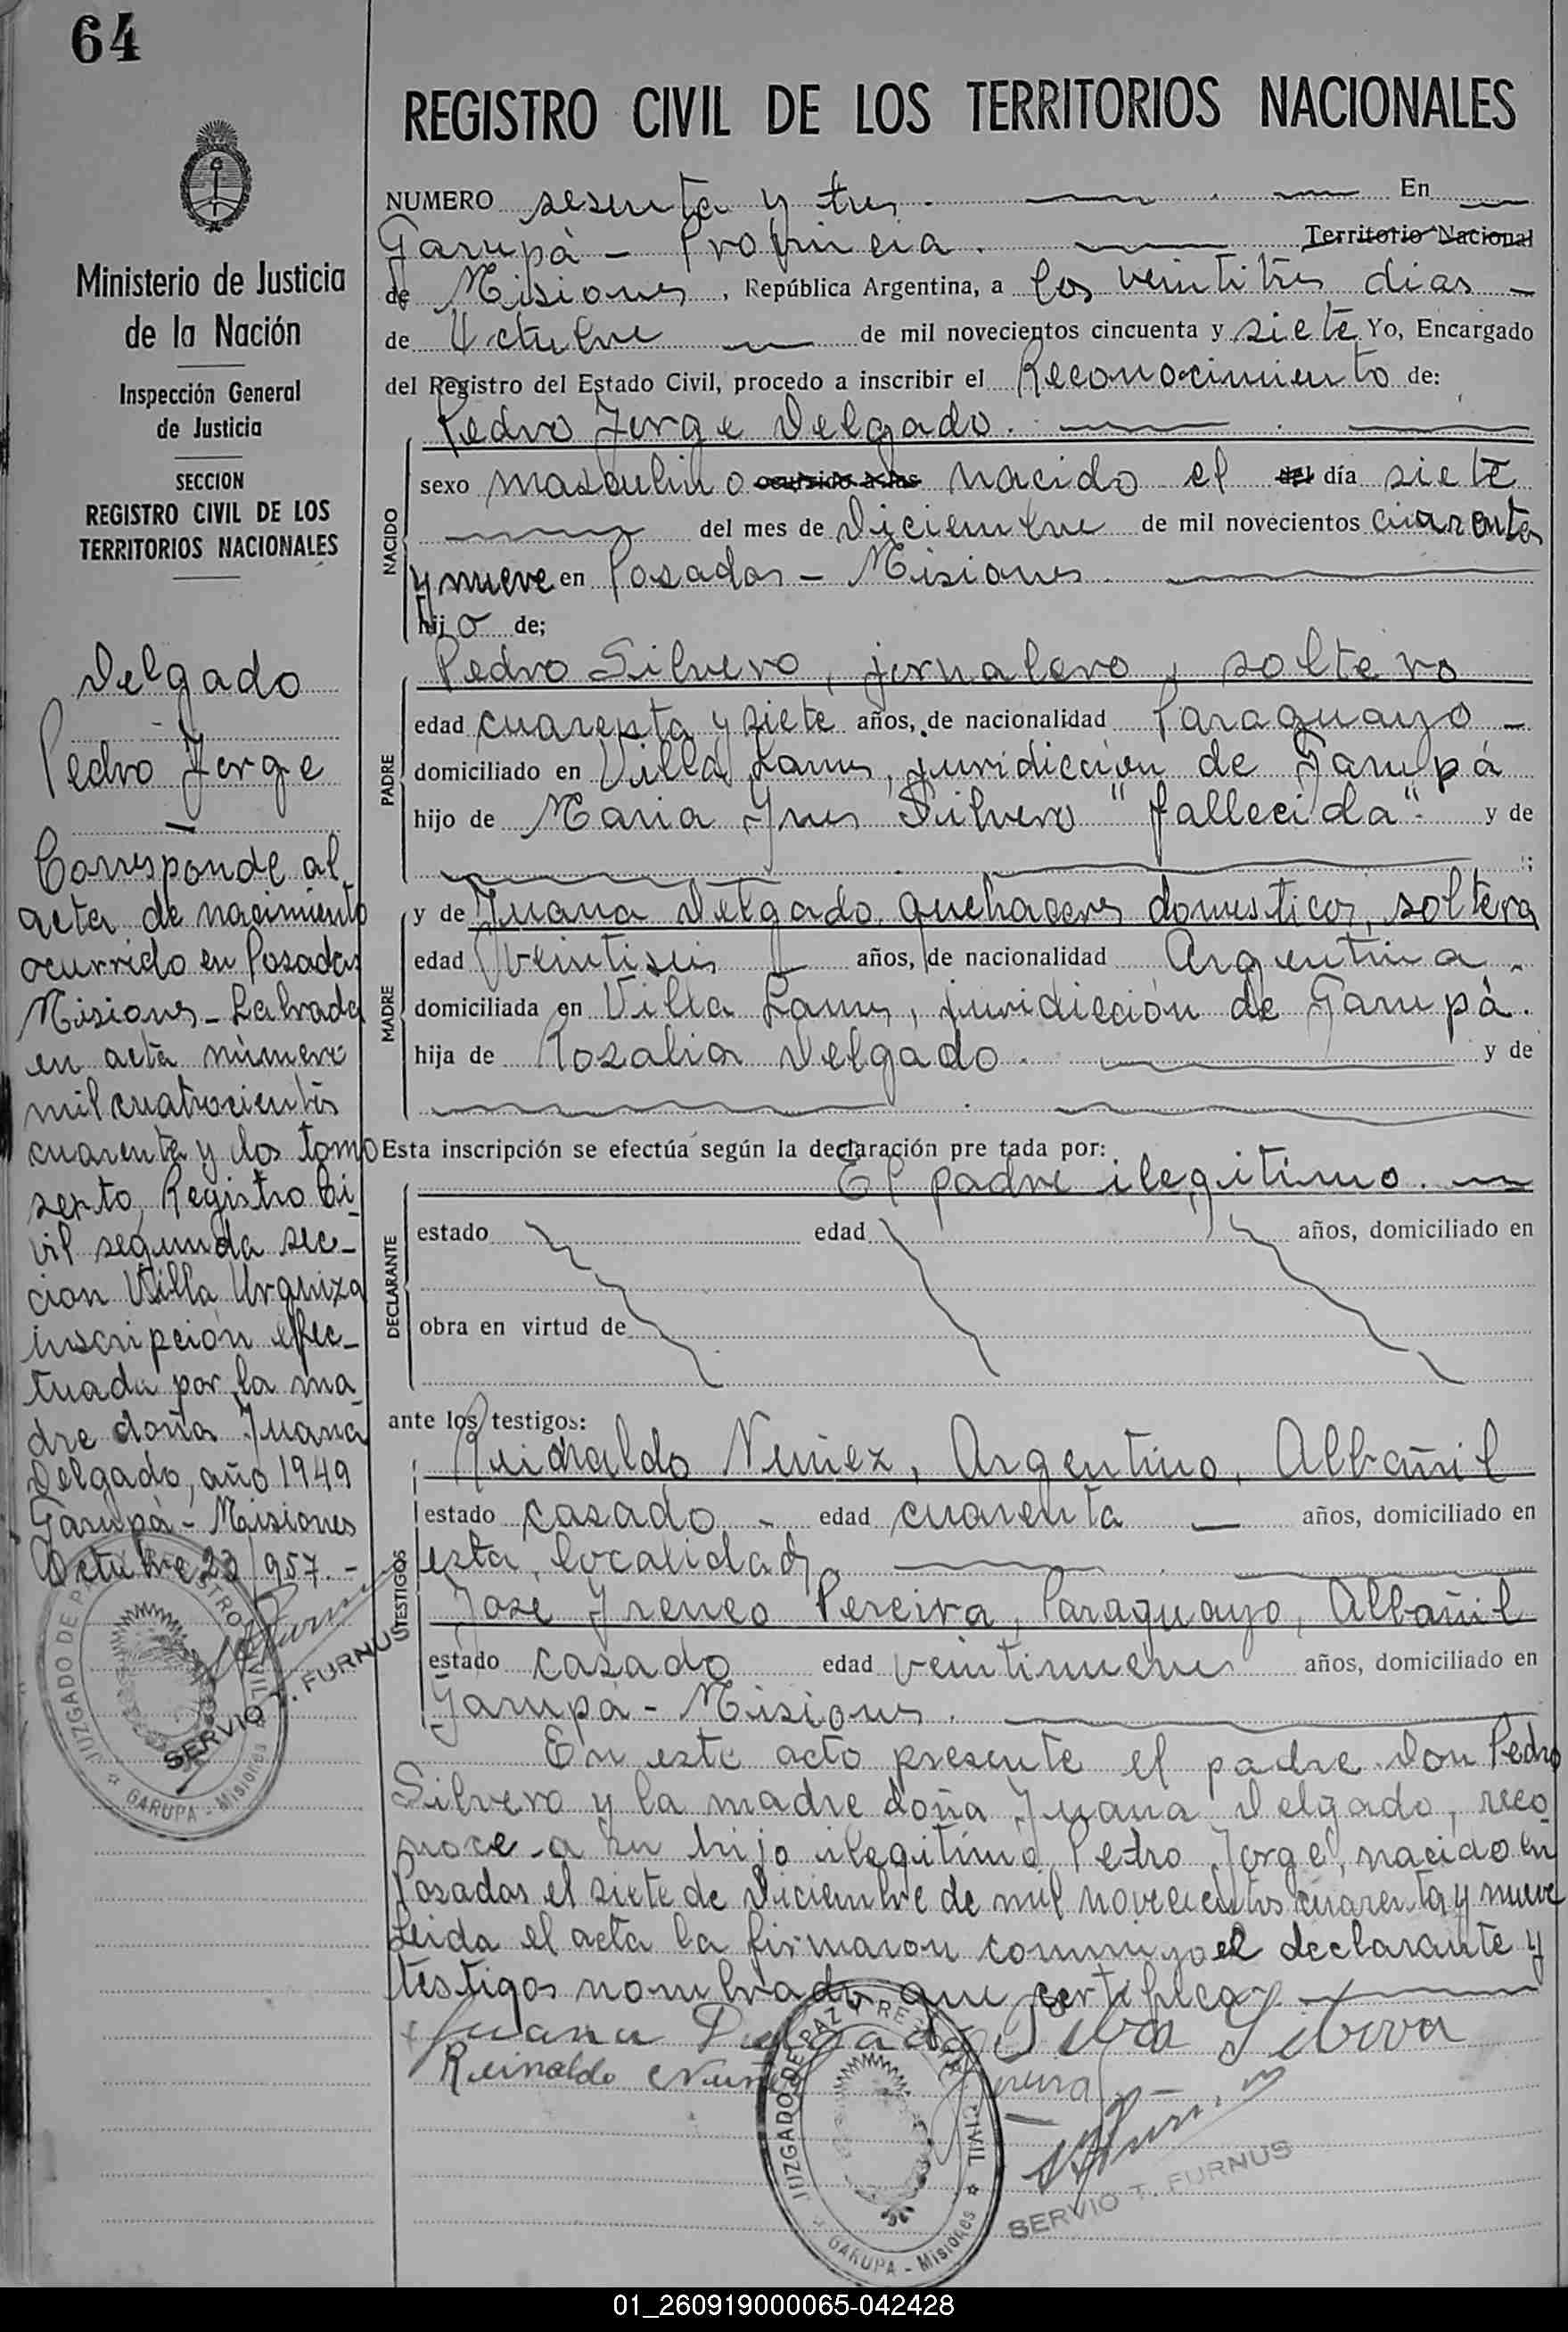 64
REGISTRO CIVIL DE LOS TERRITORIOS NACIONALES
Ministerio de Justicia
de la Nación
Inspección General
de Justicia
SECCION
REGISTRO CIVIL DE LOS
TERRITORIOS NACIONALES
Delgado
Pedro Jorge
Corresponde al
acta de nacimiento
ocurrido en Posadas
Misiones - Labrada
en acta número
mil cuatrocientos
cuarenta y dos tomo
sexto, Registro Ci-
vil segunda sec-
cion Villa Urquiza
inscripción efec-
tuada por la ma-
dre doña Juana
Delgado, año 1949
Garupá - Misiones
Octubre 23/957.-
JUZGADO DE PAZ Y REGISTRO CIVIL
GARUPA - Misiones
SERVIO T. FURNUS
NUMERO sesenta y tres. En
Garupá - Provincia. Territorio Nacional
de Misiones, República Argentina, a los veintitrés dias
de Octubre de mil novecientos cincuenta y siete Yo, Encargado
del Registro del Estado Civil, procedo a inscribir el Reconocimiento de:
Pedro Jorge Delgado.
NACIDO
sexo masculino ocurrido a las nacido el del día siete
del mes de Diciembre de mil novecientos cuarenta
y nueve en Posadas - Misiones.
hijo de;
PADRE
Pedro Silvero, jornalero, soltero
edad cuarenta y siete años, de nacionalidad Paraguayo -
domiciliado en Villa Lanus, juridicción de Garupá
hijo de Maria Ynes Silvero "fallecida". y de
MADRE
y de Juana Delgado, quehaceres domesticos, soltera
edad veintiseis años, de nacionalidad Argentina.
domiciliada en Villa Lanus, juridicción de Garupá.
hija de Rosalia Delgado. y de
Esta inscripción se efectúa según la declaración pre tada por:
DECLARANTE
El padre ilegitimo.
estado edad años, domiciliado en
obra en virtud de
ante los testigos:
TESTIGOS
Reinaldo Nuñez, Argentino, Albañil
estado casado - edad cuarenta años, domiciliado en
esta localidad
José Ireneo Pereira, Paraguayo, Albañil
estado casado edad veintinueve años, domiciliado en
Garupá - Misiones.
En este acto presente el padre Don Pedro
Silvero y la madre doña Juana Delgado, reco
noce a su hijo ilegitimo Pedro Jorge, nacido en
Posadas el siete de Diciembre de mil novecientos cuarenta y nueve
Leida el acta la firmaron conmigo el declarante y
testigos nombrados que certifico.
Juana Delgado
Reinaldo Nuñez
JUZGADO DE PAZ Y REGISTRO CIVIL
GARUPA - Misiones
SERVIO T. FURNUS
01_260919000065-042428